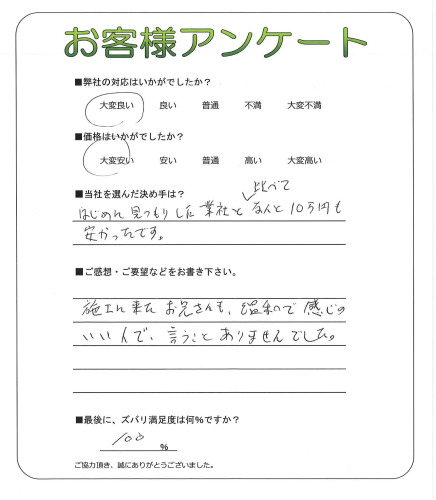 お客様アンケート
■弊社の対応はいかがでしたか?
大変良い 良い 普通 不満 大変不満
■価格はいかがでしたか?
大変安い 安い 普通 高い 大変高い
■当社を選んだ決め手は?
比べて
はじめに見つもりした業社となんと10万円も
安かったです。
■ご感想・ご要望などをお書き下さい。
施工に来たお兄さんも、温和で感じの
いい人で、言うことありませんでした。
■最後に、ズバリ満足度は何%ですか?
100 %
ご協力頂き、誠にありがとうございました。